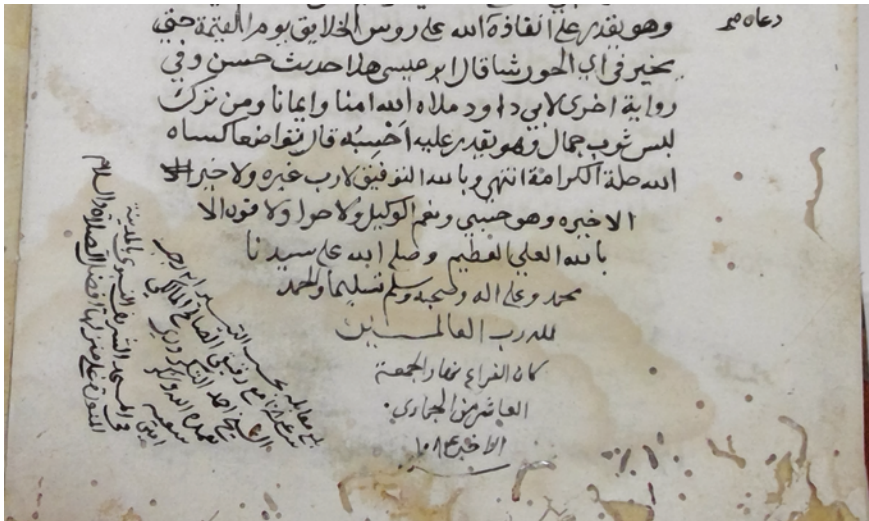 دعاه صح
وهو يقدر على انفاذه الله على روس الخلايق يوم القيمة حتى
يخير في اي الحور شا قال ابو عيسى هذا حديث حسن وفي
رواية اخرى لابي داود ملاه الله امنا وايمانا ومن ترك
لبس ثوب جمال وهو يقدر عليه احسبه قال تواضعا كساه
الله حلة الكرامة انتهى وبالله التوفيق لا رب غيره ولا خير
الا خيره وهو حسبي ونعم الوكيل ولا حول ولا قوة الا
بالله العلي العظيم وصلى الله على سيدنا
محمد وعلى اله وصحبه وسلم تسليما والحمد
لله رب العالمين
كان الفراغ نهار الجمعة
العاشر من الجمادي
الاخير ١٠٨٤
بلغ مقابلة بحسب التيسير
مع رفيقي الصالح المالكي
الشيخ احمد التكروري
في المسجد الشريف النبوي بالمدينة
المنورة على منزلها افضل الصلاة والسلام